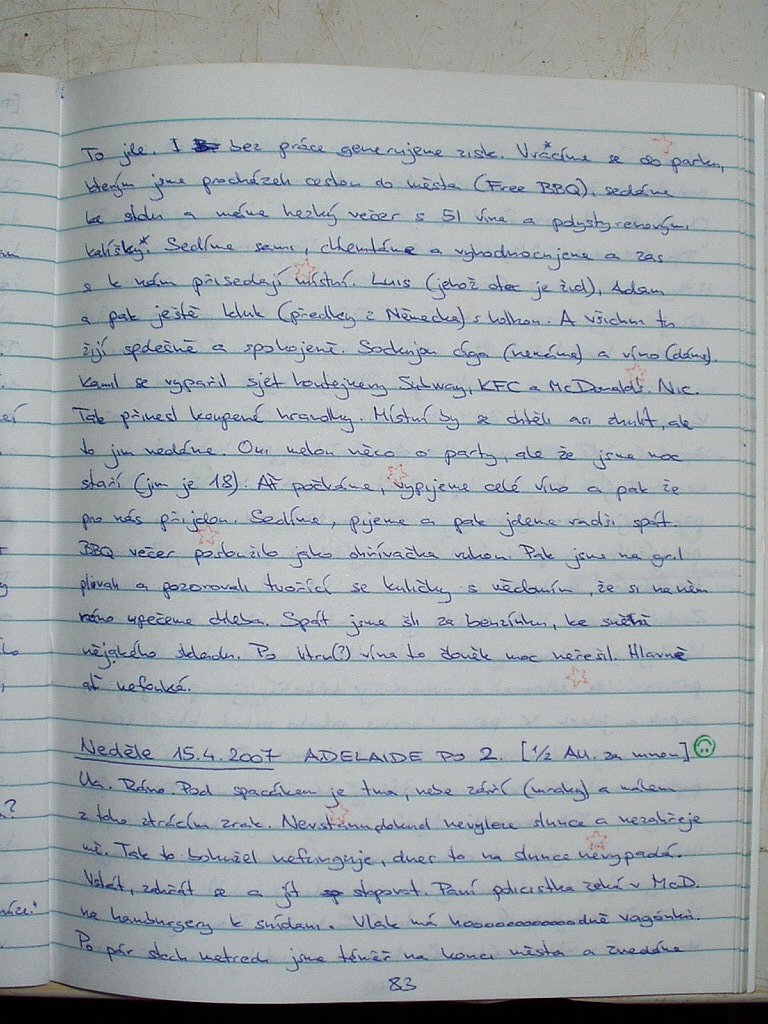 To jde. I bez práce generujeme zisk. Vrácíme se do parku,
kterým jsme procházeli cestou do města (Free BBQ), sedáme
ke stolu a máme hezký večer s 5l vína a polystyrenovými
kalíšky. Sedíme sami, chlemtáme a vyhodnocujeme a zas
si k nám přisedají místní. Luis (jehož otec je žid), Adam
a pak ještě kluk (předky z Německa) s holkou. A všichni tu
žijí spolešně a spokojeně. cíga (nemáme) a víno (dáme).
Kamil se vypařil sjet kontejnery Subway, KFC a McDonald's. Nic.
Tak přinesl koupené hranolky. Místní by se chtěli asi zhulit, ale
to jim nedáme. Oni melou něco o party, ale že jsme moc
staří (jim je 18). Ať počkáme, vypijeme celé víno a pak že
pro nás přijdou. Sedíme, pijeme a pak jdeme radši spát.
BBQ večer posloužilo jako ohřívačka rukou. Pak jsme na gril
plivali a pozorovali tvořící se kuličky s vědomím, že si na něm
ráno upečeme chleba. Spát jsme šli za benzínku, ke
nějakého skladu. Po litru(?) vína to člověk moc neřeší. Hlavně
ať nefouká.
Neděle 15.4.2007 ADELAIDE PO 2. [1/2 AU. za mnou]
Ua. Ráno. Pod spacákem je tma, nebe září (mraky) a málem
z toho ztrácím zrak. Nevstanu dokud nevyleze slunce a nezahřeje
mě. Tak to bohužel nefunguje, dnes to na slunce nevypadá.
Vstát, zahřát se a jít stopovat. Paní policistka čeká v McD.
na hamburgery k snídani. Vlak má hooooooooooodně vagónků.
Po pár stech metrech jsme téměř na konci města a zvedáme
83